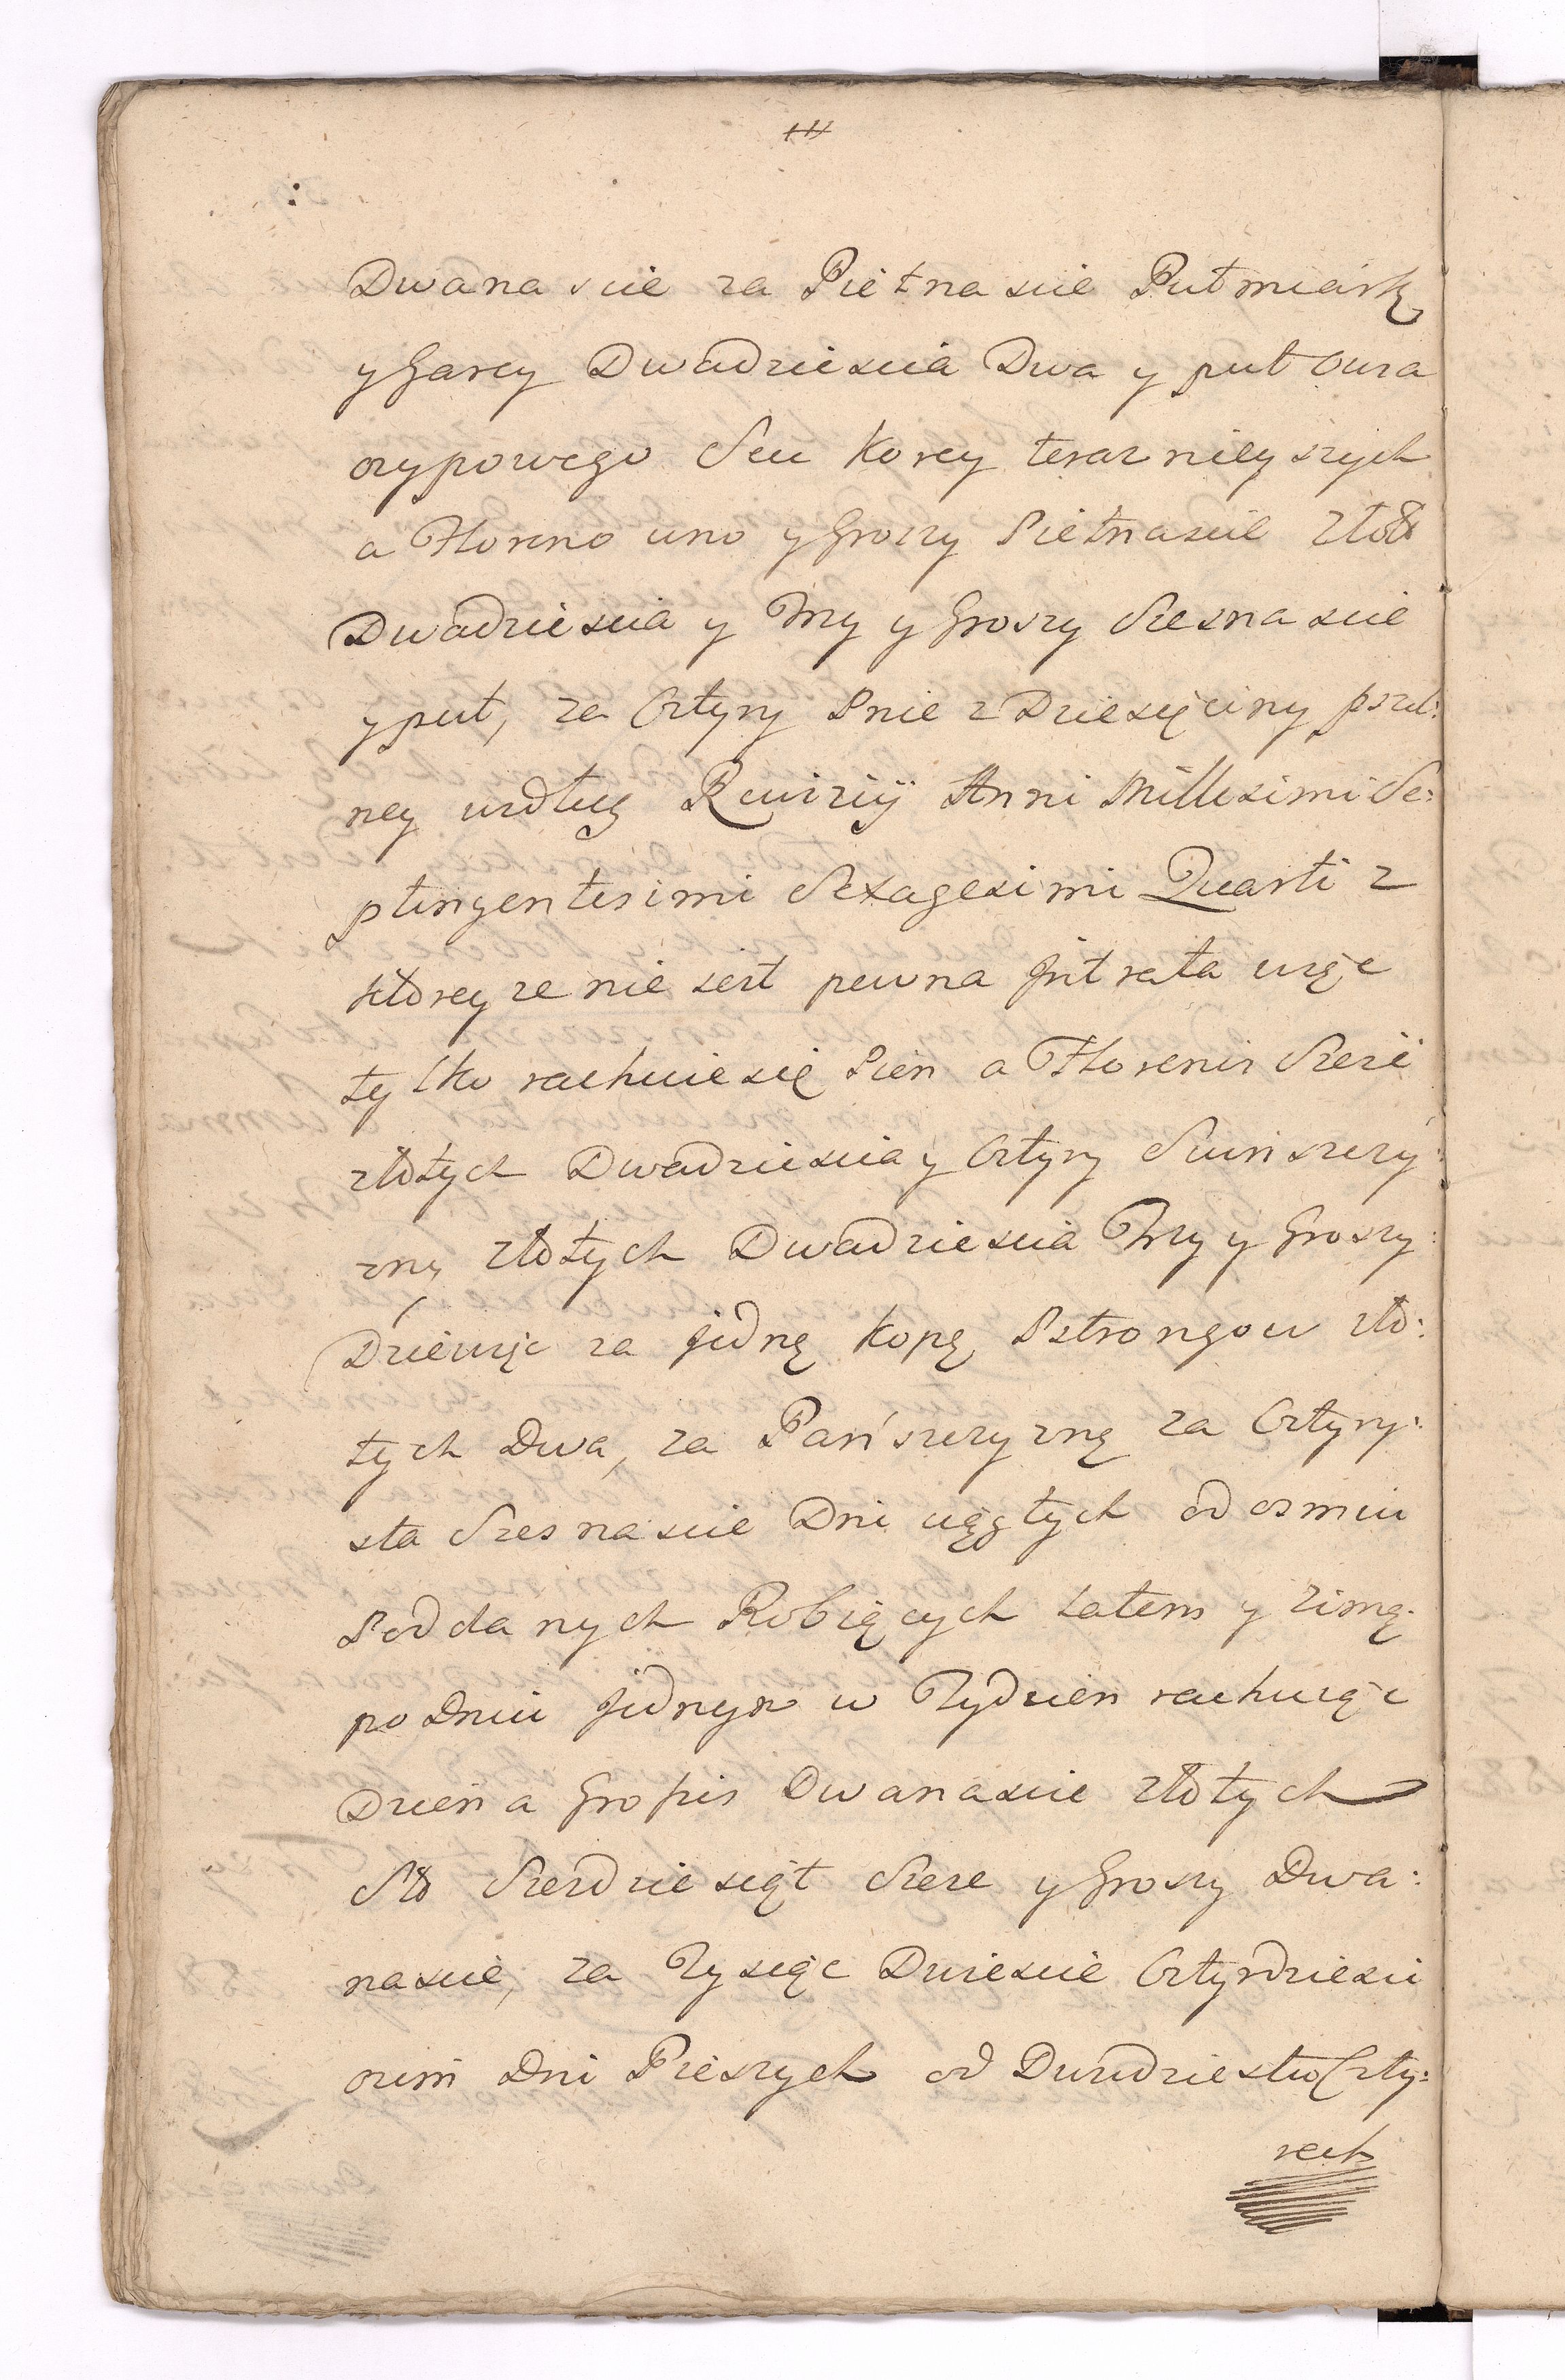 Dwanascie za Pietnascie Putmiarkę
y Garcy Dwadziescia Dwa y puł Owsa
ozypowego Seu Korcy teraznieyszych
a Floreno uno y Groszy Pietnascie Złoł
Dwadziescia y Trzy y Groszy Szesnascie
y puł, za Cztyry Pnie z Dziesięciny pszel:
ney według Rewizÿ Anni Millesimi Se:
ptingentesimi Sexagesimi Quarti z
ktorey ze nie jest pewna Jntrata więc
tylko rachuie się Pien a Florenis Sześć
złotych Dwadziescia y Cztyry Swinszczy:
znę złotych Dwadziescia Trzy y Groszy:
Dziewięc za Jednę Kopę Pstrongow zło:
tych Dwa, za Pańszczyznę za Cztyry:
sta Szesnascie Dni ciągłych od osmiu
Poddanych Robiących Latem y Zimą
po Dniu Jednym w Tydzien rachuiąc
Dzien a Groszis Dwanascie złotych
Sto Szesdziesiąt Szesc y Groszy Dwa:
nascie, za Tysiąc Dwiescie Cztyrdziesci
osim Dni Pieszych od Dwudziestu Czty:
rech